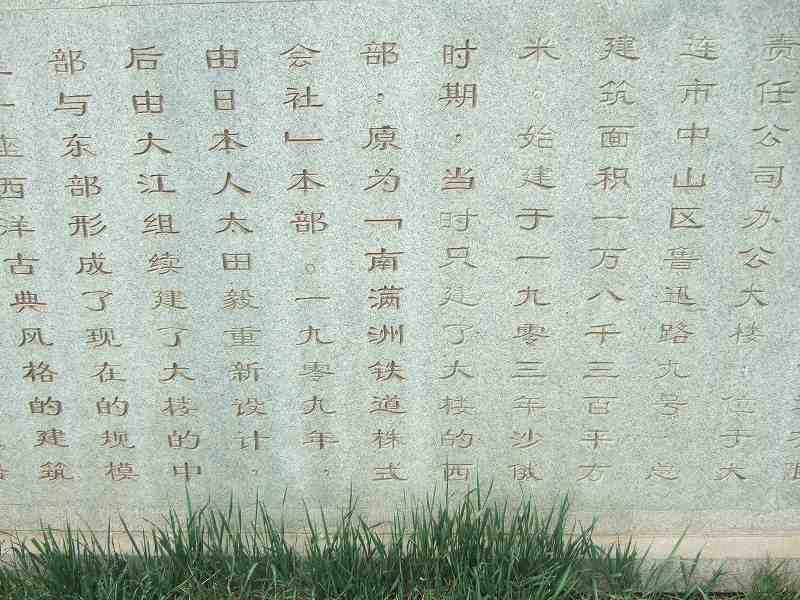 责任公司办公大楼 位于大
连市中山区鲁迅路九号 总
建筑面积一万八千三百平方
米。始建于一九零三年沙俄
时期,当时只建了大楼的西
部,原为「南满洲铁道株式
会社」本部。一九零九年,
由日本人太田毅重新设计,
后由大江组续建了大楼的中
部与东部形成了现在的规模
一座西洋古典风格的建筑